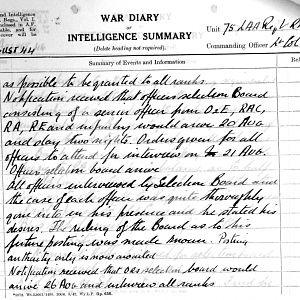 and Intelligence
Regs., Vol. I.
enclosed in A.F.
able, and for
cover will be
WAR DIARY
or
INTELLIGENCE SUMMARY
(Delete heading not required).
Unit 75 LAA Regt R
Commanding Officer Lt Col
UST 44
Summary of Events and Information
as possible to be granted to all ranks.
Notification received that officers selection Board
consisting of a senior officer from O2E, RAC,
RA, RE and infantry would arrive 20 AUG
and stay two nights. Orders given for all
officers to attend for interview on 21 AUG.
Officers selection board arrive
All officers interviewed by Selection Board and
the case of each officer was quite thoroughly
gone into in his presence and he stated his
desires. The ruling of the Board as to his
future posting was made known. Posting
authority only is now awaited
Notification received that ORs selection board would
arrive 26 AUG and interview all ranks
Gp. 656.